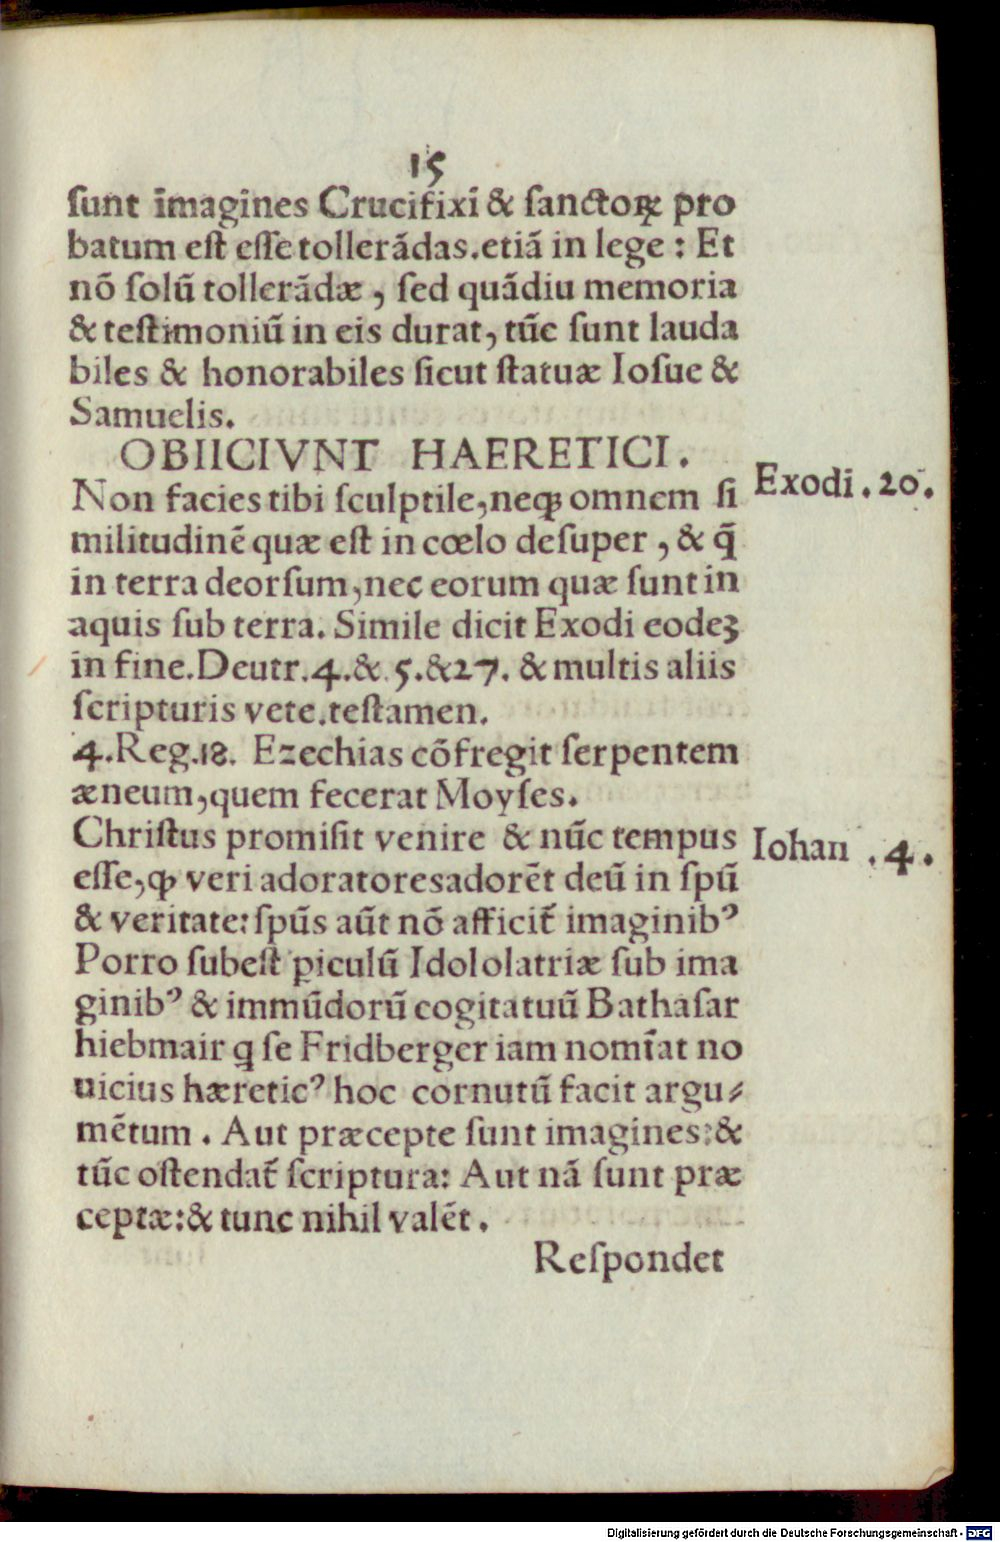 15
sunt īmagines Crucifixi & sanctoꝝ pro
batum est esse tollerādas.etiā in lege : Et
nō solū tollerādæ , sed quādiu memoria
& testimoniū in eis durat, tūc sunt lauda
biles & honorabiles sicut statuæ Iosue &
Samuelis.
OBIICIVNT HAERETICI.
Non facies tibi sculptile,neqꝫ omnem si
Exodi . 20.
militudinē quæ est in cœlo desuper , & q̄
in terra deorsum,nec eorum quæ sunt in
aquis sub terra. Simile dicit Exodi eodeꝫ
in fine.Deutr.4.& 5.&27. & multis aliis
scripturis vete.testamen.
4.Reg.18. Ezechias cōfregit serpentem
æneum,quem fecerat Moyses.
Christus promisit venire & nūc tempus
Iohan . 4 .
esse,ꝙ veri adoratores adorēt deū in spū
& veritate: spūs aūt nō afficit̄ imaginibꝰ
Porro subest piculū Idololatriæ sub ima
ginibꝰ & immūdorū cogitatuū Bathasar
hiebmair q se Fridberger iam nomīat no
uicius hæreticꝰ hoc cornutū facit argu⸗
mētum . Aut præcepte sunt imagines:&
tūc ostendat̄ scriptura: Aut nā sunt præ
ceptæ:& tunc nihil valēt .
Respondet
Digitalisierung gefördert durch die Deutsche Forschungsgemeinschaft - DFG